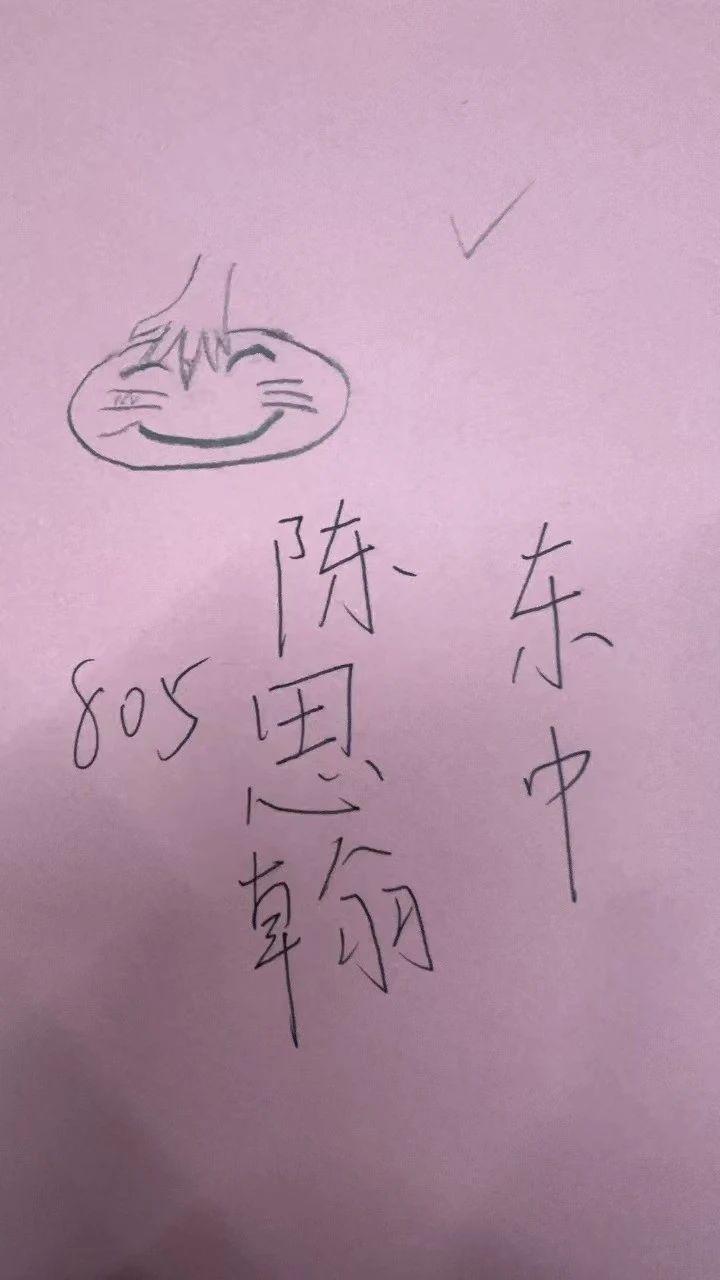 东中
陈思翰
805